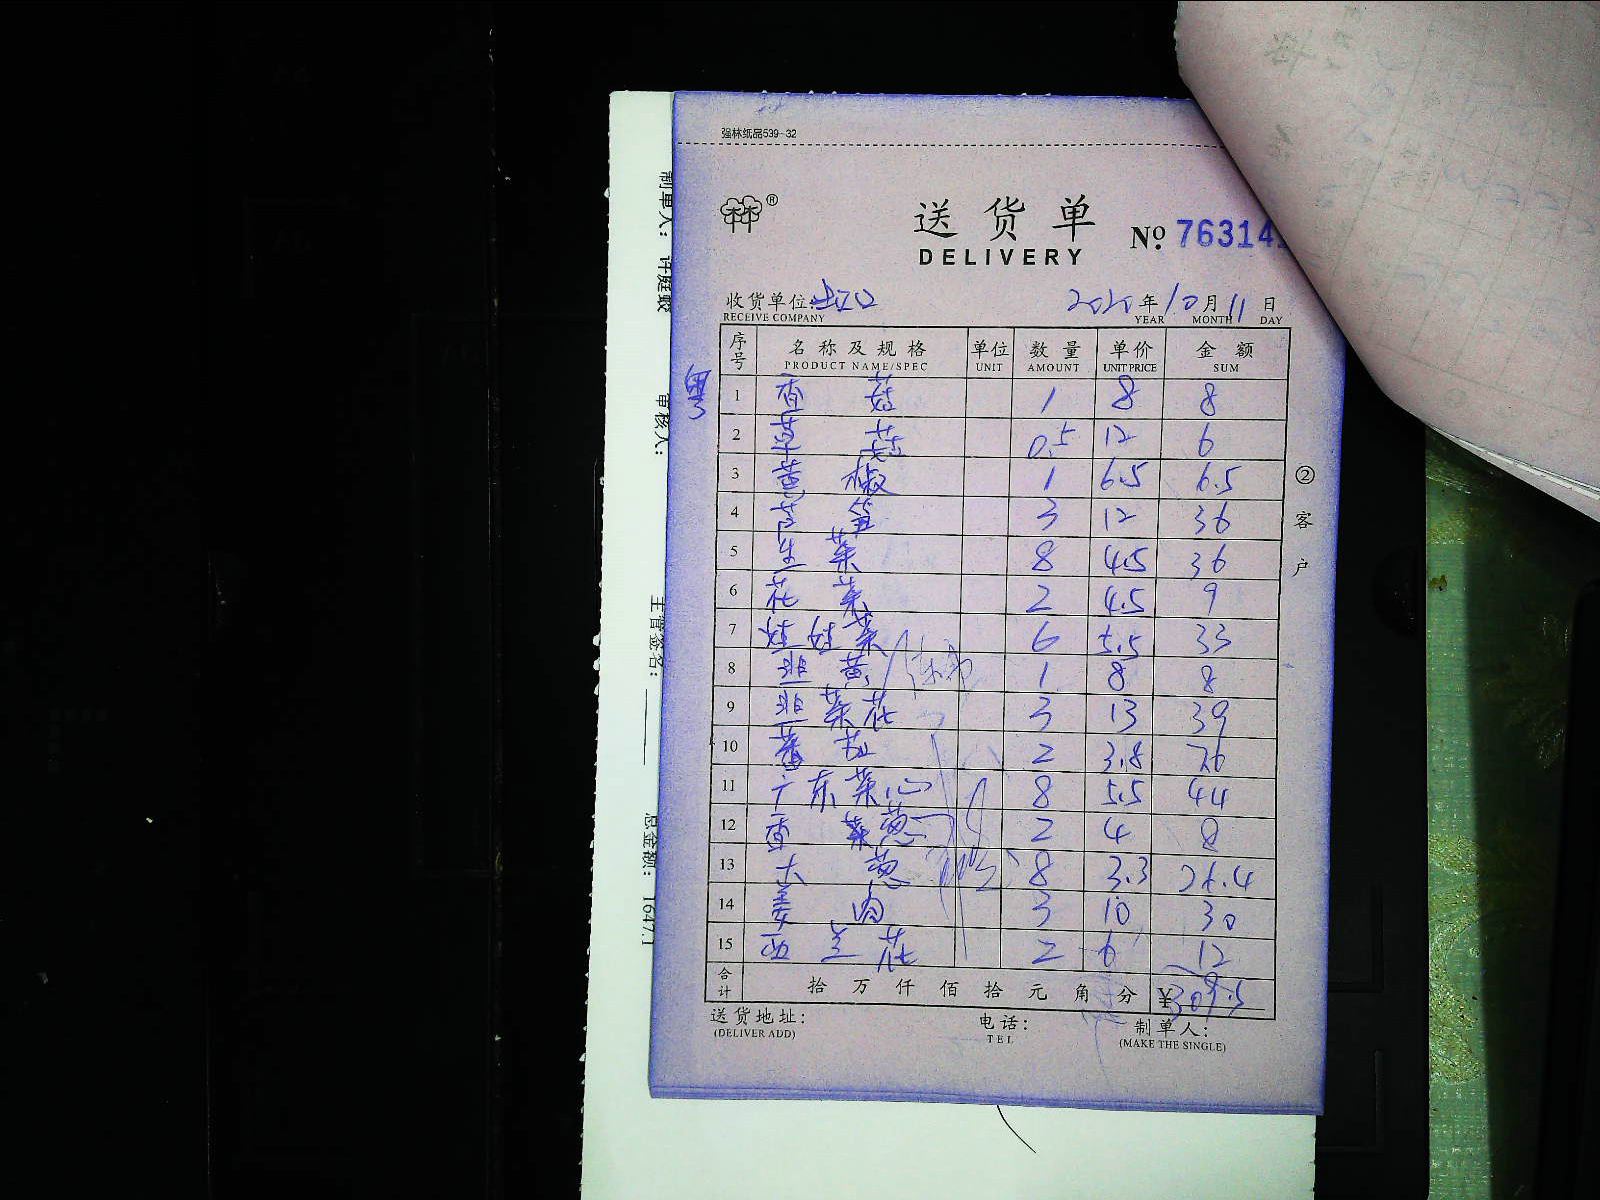 强林纸品539-32
®
送货单
DELIVERY
№ 76314
收货单位:
2020年10月11日
RECEIVE COMPANY YEAR MONTH DAY
序号 名称及规格 单位 数量 单价 金额
PRODUCT NAME/SPEC UNIT AMOUNT UNIT PRICE SUM
粤
1 香菇 1 8 8
2 草菇 0.5 12 6
3 黄椒 1 6.5 6.5
4 芦笋 3 12 36
5 生菜 8 4.5 36
6 花菜 2 4.5 9
7 娃娃菜 6 5.5 33
8 韭黄 1 8 8
9 韭菜花 3 13 39
10 蕃茄 2 3.8 7.6
11 广东菜心 8 5.5 44
12 香菜葱 2 4 8
13 大葱 8 3.3 26.4
14 姜肉 3 10 30
15 西兰花 2 6 12
合计 拾万仟佰拾元角分 ¥309.5
送货地址: 电话: 制单人:
(DELIVER ADD) TEL (MAKE THE SINGLE)
②客户
制单人: 许庭蛟
审核人:
主管签名:
总金额: 1647.1